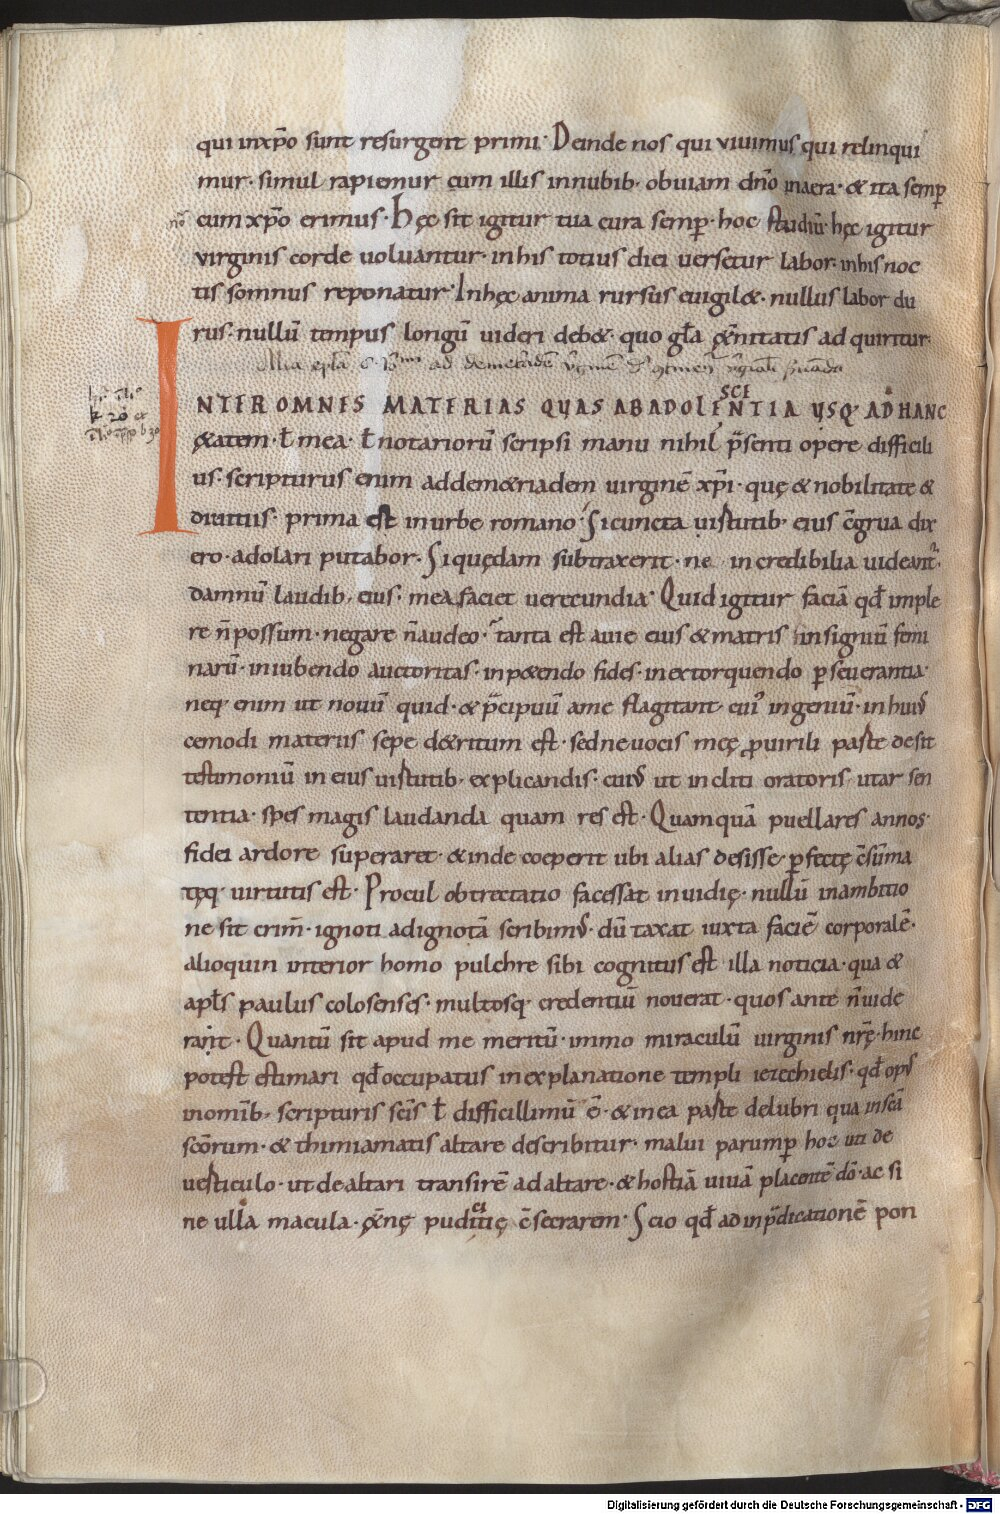 qui inxp̄o sunt resurgent primi· Deinde nos qui viuimus qui relinqui
mur· simul rapiemur cum illis innubib· obuiam dn̄o inaera· & ita semp̄
cum xp̄o erimus· hęc sit igitur tua cura semp̄· hoc studiū· hęc igitur
virginis corde uoluantur· in his totius diei uersetur labor· inhis noc
tis somnus reponatur· Inhęc anima rursus euigil&· nullus labor du
rus· nullū tempus longū uideri deb&· quo gl̄a ę̄nitatis adquiritur·
Alia epl̄a
INTER OMNES MATERIAS QUAS ABADOLENTIA USQ· AD HANC
SCE
ę&atem· ł mea· ł notariorū scripsi manu nihil p̄senti opere difficili
us· scripturus enim addem&riadem uirginē xp̄i· quę & nobilitate &
diuitiis· prima est inurbe romano· Si cuncta uirtutib· eius c̄grua dix
ero· adolari putabor· Si quędam subtraxerit· ne incredibilia uideant̄·
damnū laudib· eius· mea faciet uerecundia· Quid igitur faciā qđ imple
re n̄ possum· negare n̄ audeo· tanta est auie eius & matris insigniū femi
narū· iniubendo auctoritas· inp&endo fides· inextorquendo pseuerantia·
neq· enim ut nouū quid· & p̄cipuū ame flagitant· cui' ingeniū· in hui'
cemodi materiis sepe d&ritum est· sed ne uocis meę puirili parte desit
testimoniū in eius uirtutib· explicandis· cui' ut incliti oratoris utar sen
tentia· spes magis laudanda quam res est· Quamquā puellares annos
fidei ardore superaret· & inde coeperit ubi alias desisse· pfectę c̄sūma
tęq· uirtutis est· Procul obtrectatio facessat inuidię· nullū inambitio
ne sit crim̄· ignoti adignotā scribim'· dū taxat iuxta faciē corporalē·
alioquin interior homo pulchre sibi cognitus est illa noticia· qua &
apl̄s paulus colosenses· multosq· credentiū nouerat· quos ante n̄ uide
rant· Quantū sit apud me meritū· immo miraculū uirginis nr̄ę· hinc
potest estimari qđ occupatus inexplanatione templi iezechielis· qđ op'
inomib· scripturis sc̄is ł difficillimū ē· & in ea parte delubri qua in sc̄a
sc̄orum· & thimiamatis altare describitur· malui parump̄ hoc uti de
uesticulo· ut de altari transirē ad altare· & hostiā uiuā placentē dō· ac si
ne ulla macula· ę̄nę puditię c̄secrarem· Scio qđ ad inp̄dicationē pon